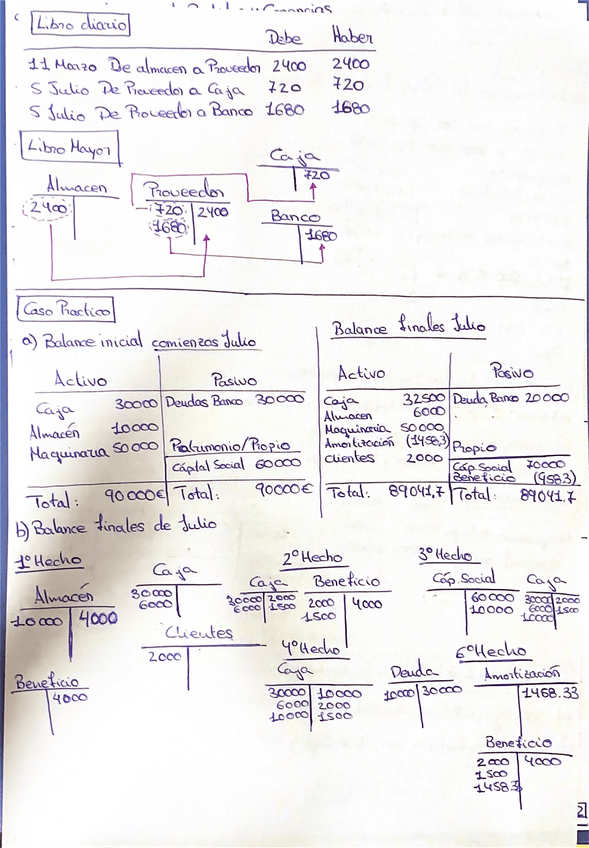 Libro diario
Debe Haber
11 Marzo De almacen a Proveedor 2400 2400
5 Julio De Proveedor a Caja 720 720
5 Julio De Proveedor a Banco 1680 1680
Libro Mayor
Caja
720
Almacen
2400
Proveedor
720 2400
1680
Banco
1680
Caso Practico
a) Balance inicial comienzos Julio
Activo Pasivo
Caja 30000 Deudas Banco 30000
Almacén 10000
Maquinaria 50000 Patrimonio/Propio
Cápital Social 60000
Total: 90000€ Total: 90000€
Balance finales Julio
Activo Pasivo
Caja 32500 Deuda Banco 20000
Almacen 6000
Maquinaria 50000
Amortización (1458,3) Propio
Clientes 2000 Cáp. Social 70000
Beneficio (958.3)
Total: 89041,7 Total: 89041,7
b) Balance finales de Julio
1º Hecho
Almacén
10000 4000
Caja
30000
6000
Clientes
2000
Beneficio
4000
2º Hecho
Caja
30000 2000
6000 1500
Beneficio
2000 4000
1500
3º Hecho
Cáp. Social
60000
10000
Caja
30000 2000
6000 1500
10000
4º Hecho
Caja
30000 10000
6000 2000
10000 1500
Deuda
10000 30000
6º Hecho
Amortización
1458.33
Beneficio
2000 4000
1500
1458.3
2